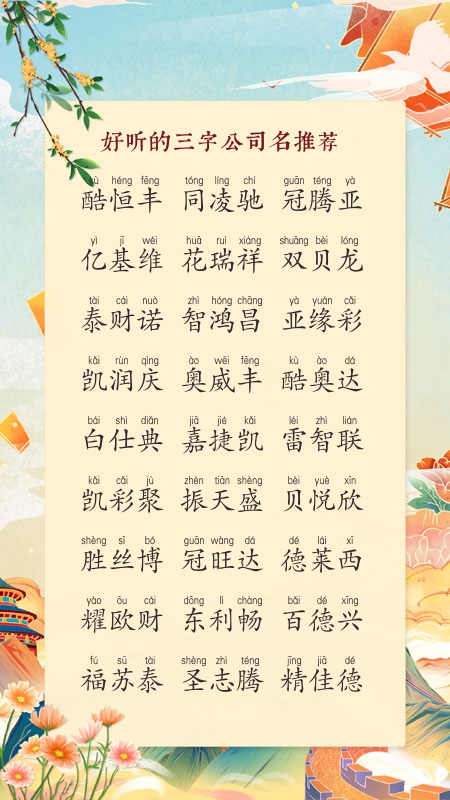 好听的三字公司名推荐
kù héng fēng tóng líng chí guān téng yà
酷恒丰 同凌驰 冠腾亚
yì jī wéi huā ruì xiáng shuāng bèi lóng
亿基维 花瑞祥 双贝龙
tài cái nuò zhì hóng chāng yà yuán cǎi
泰财诺 智鸿昌 亚缘彩
kǎi rùn qìng ào wēi fēng kù ào dá
凯润庆 奥威丰 酷奥达
bái shì diǎn jiā jié kǎi léi zhì lián
白仕典 嘉捷凯 雷智联
kǎi cǎi jù zhèn tiān shèng bèi yuè xīn
凯彩聚 振天盛 贝悦欣
shèng sī bó guān wàng dá dé lái xī
胜丝博 冠旺达 德莱西
yào ōu cái dōng lì chàng bǎi dé xīng
耀欧财 东利畅 百德兴
fú sū tài shèng zhì téng jīng jiā dé
福苏泰 圣志腾 精佳德